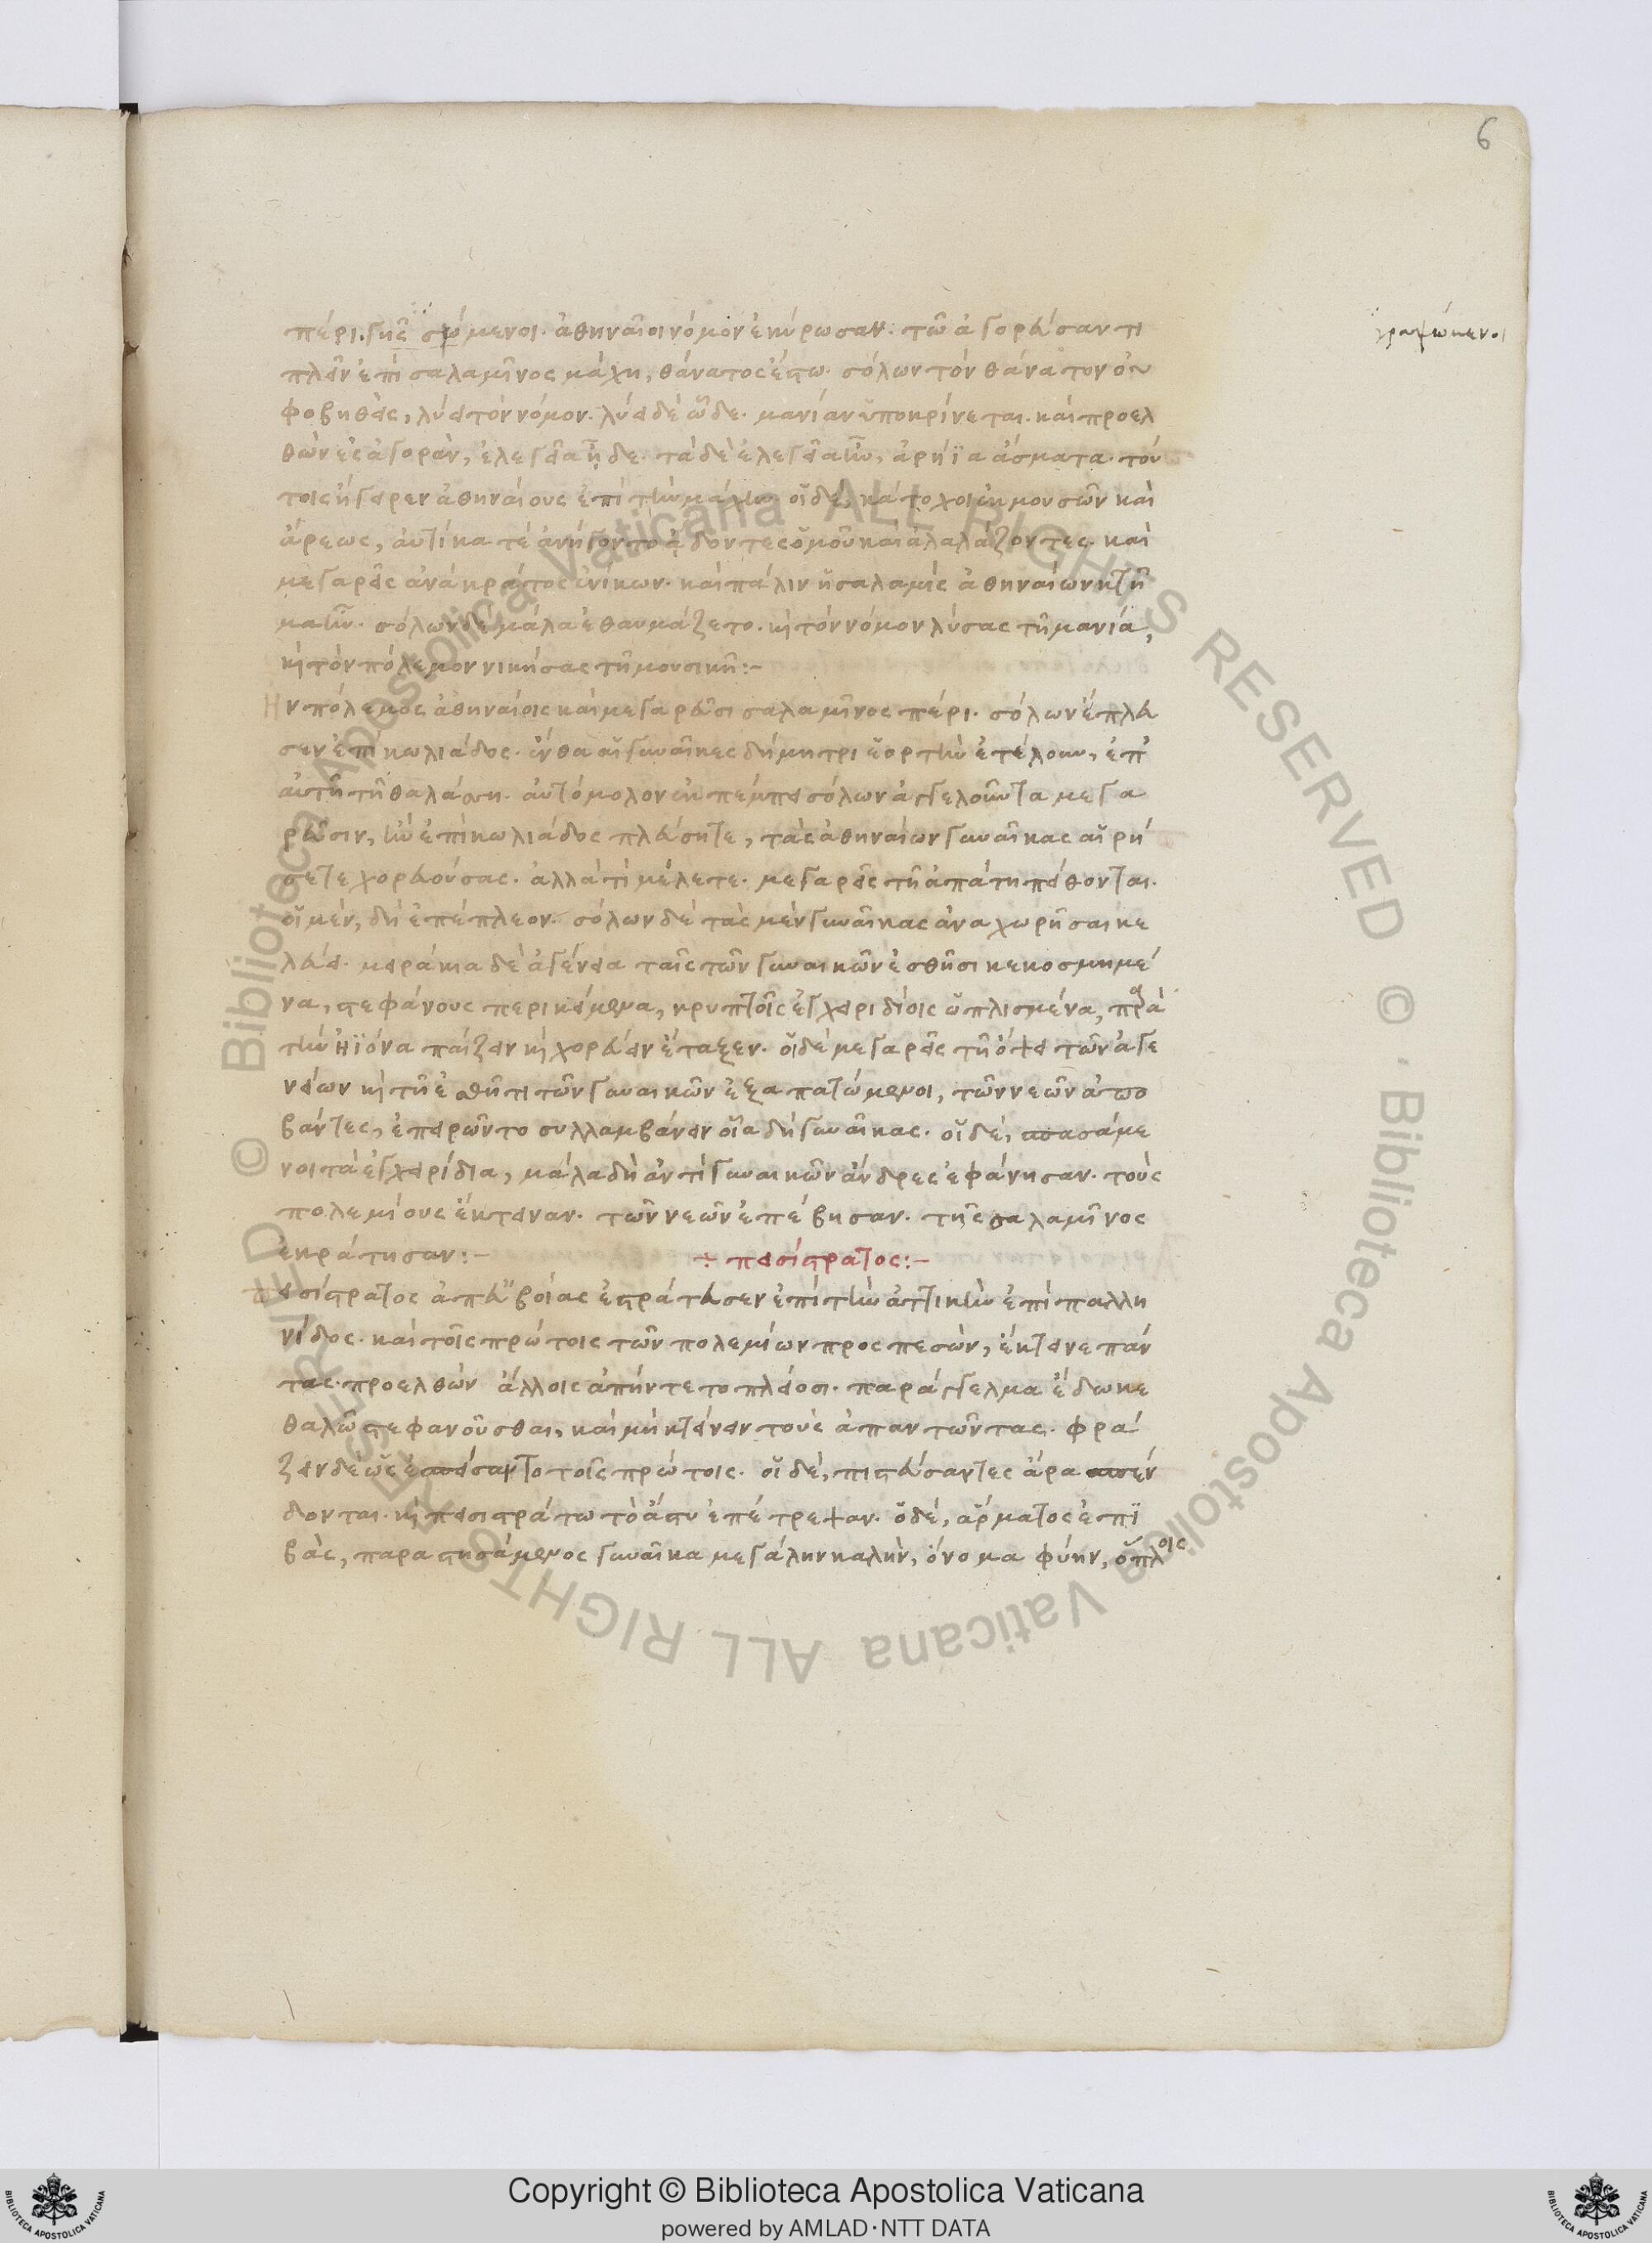 6
πέρι. γῆς σῳμενοι. ἀθηναῖοι νόμον ἐκύρωσαν. τῶ ἀγορεύσαντι
πλεῖν ἐπὶ σαλαμῖνος μάχη, θάνατος ἔστω. σόλων τὸν θάνατον οὐ
φοβηθεὶς, λύει τὸν νόμον. λύει δὲ ὧδε. μανίαν ὑποκρίνεται. καὶ προελ
θὼν εἰς ἀγορὰν, ἐλεγεῖα ᾖδε. τὰ δὲ ἐλεγεῖα ἦν, ἀρήϊα ἄσματα. τού
τοις ἤγειρεν ἀθηναίους ἐπὶ τὴν μάχην. οἵδε, κάτοχοι ἐκ μουσῶν καὶ
ἄρεως, αὐτίκα τὲ ἀνήγοντο ᾄδοντες ὁμοῦ καὶ ἀλαλάζοντες. καὶ
μεγαρεῖς ἀνὰ κράτος ἐνίκων. καὶ πάλιν ἡ σαλαμὶς ἀθηναίων κτῆ
μα ἦν. σόλων δὲ μάλα ἐθαυμάζετο. καὶ τὸν νόμον λύσας τῆ μανία,
καὶ τὸν πόλεμον νικήσας τῆ μουσικῆ:-
Ην πόλεμος ἀθηναίοις καὶ μεγαρεῦσι σαλαμῖνος πέρι. σόλων ἔπλευ
σεν ἐπὶ κωλιάδος. ἔνθα αἱ γυναῖκες δήμητρι ἑορτὴν ἐτέλουν, ἐπ'
αὐτῆ τῆ θαλάσση. αὐτόμολον ἐκπέμπει σόλων ἀγγελοῦντα μεγα
ρεῦσιν, ἢν ἐπὶ κωλιάδος πλεύσητε, τὰς ἀθηναίων γυναῖκας αἱρή
σετε χορευούσας. ἀλλὰ τί μέλετε. μεγαρεῖς τῆ ἀπάτη πείθονται.
οἱ μὲν, δὴ ἐπέπλεον. σόλων δὲ τὰς μὲν γυναῖκας ἀναχωρῆσαι κε
λεύει. μειράκια δὲ ἀγένεια ταῖς τῶν γυναικῶν ἐσθῆσι κεκοσμημέ
να, στεφάνους περικείμενα, κρυπτοῖς ἐγχειριδίοις ὡπλισμένα, παρὰ
τὴν ηϊόνα παίζειν καὶ χορεύειν ἔταξεν. οἱ δὲ μεγαρεῖς τῆ ὄψει τῶν ἀγε
νείων καὶ τῆ ἐσθῆτι τῶν γυναικῶν ἐξαπατώμενοι, τῶν νεῶν ἀπο
βάντες, ἐπειρῶντο συλλαμβάνειν οἷα δὴ γυναῖκας. οἱ δὲ, σπασάμε
νοι τὰ ἐγχειρίδια, μάλα δὴ ἀντὶ γυναικῶν ἄνδρες ἐφάνησαν. τοὺς
πολεμίους ἔκτειναν. τῶν νεῶν ἐπέβησαν. τῆς σαλαμῖνος
ἐκράτησαν:-
+ πεισίστρατος:-
Πεισίστρατος ἀπ' εὐβοίας ἐστράτευσεν ἐπὶ τὴν ἀττικὴν ἐπὶ παλλη
νίδος. καὶ τοῖς πρώτοις τῶν πολεμίων προςπεσὼν, ἔκτεινε πάν
τας. προελθὼν ἄλλοις ἀπήντετο πλείοσι. παράγγελμα ἔδωκε
θαλῶ στεφανοῦσθαι, καὶ μὴ κτείνειν τοὺς ἀπαντῶντας. φρά
ζειν δὲ ὡς ἐσπείσαντο τοῖς πρώτοις. οἱ δὲ, πιστεύσαντες ἄρα σπέν
δονται. καὶ πεισιστράτω τὸ ἄστυ ἐπέτρεψαν. ὁ δὲ, ἅρματος ἐπι
βὰς, παραστησάμενος γυναῖκα μεγάλην καλὴν, ὄνομα φύην, ὅπλοις
Copyright © Biblioteca Apostolica Vaticana
powered by AMLAD·NTT DATA
© Biblioteca Apostolica Vaticana ALL RIGHTS RESERVED
© · Biblioteca Apostolica Vaticana ALL RIGHTS RESERVED
BIBLIOTECA APOSTOLICA VATICANA
BIBLIOTECA APOSTOLICA VATICANA